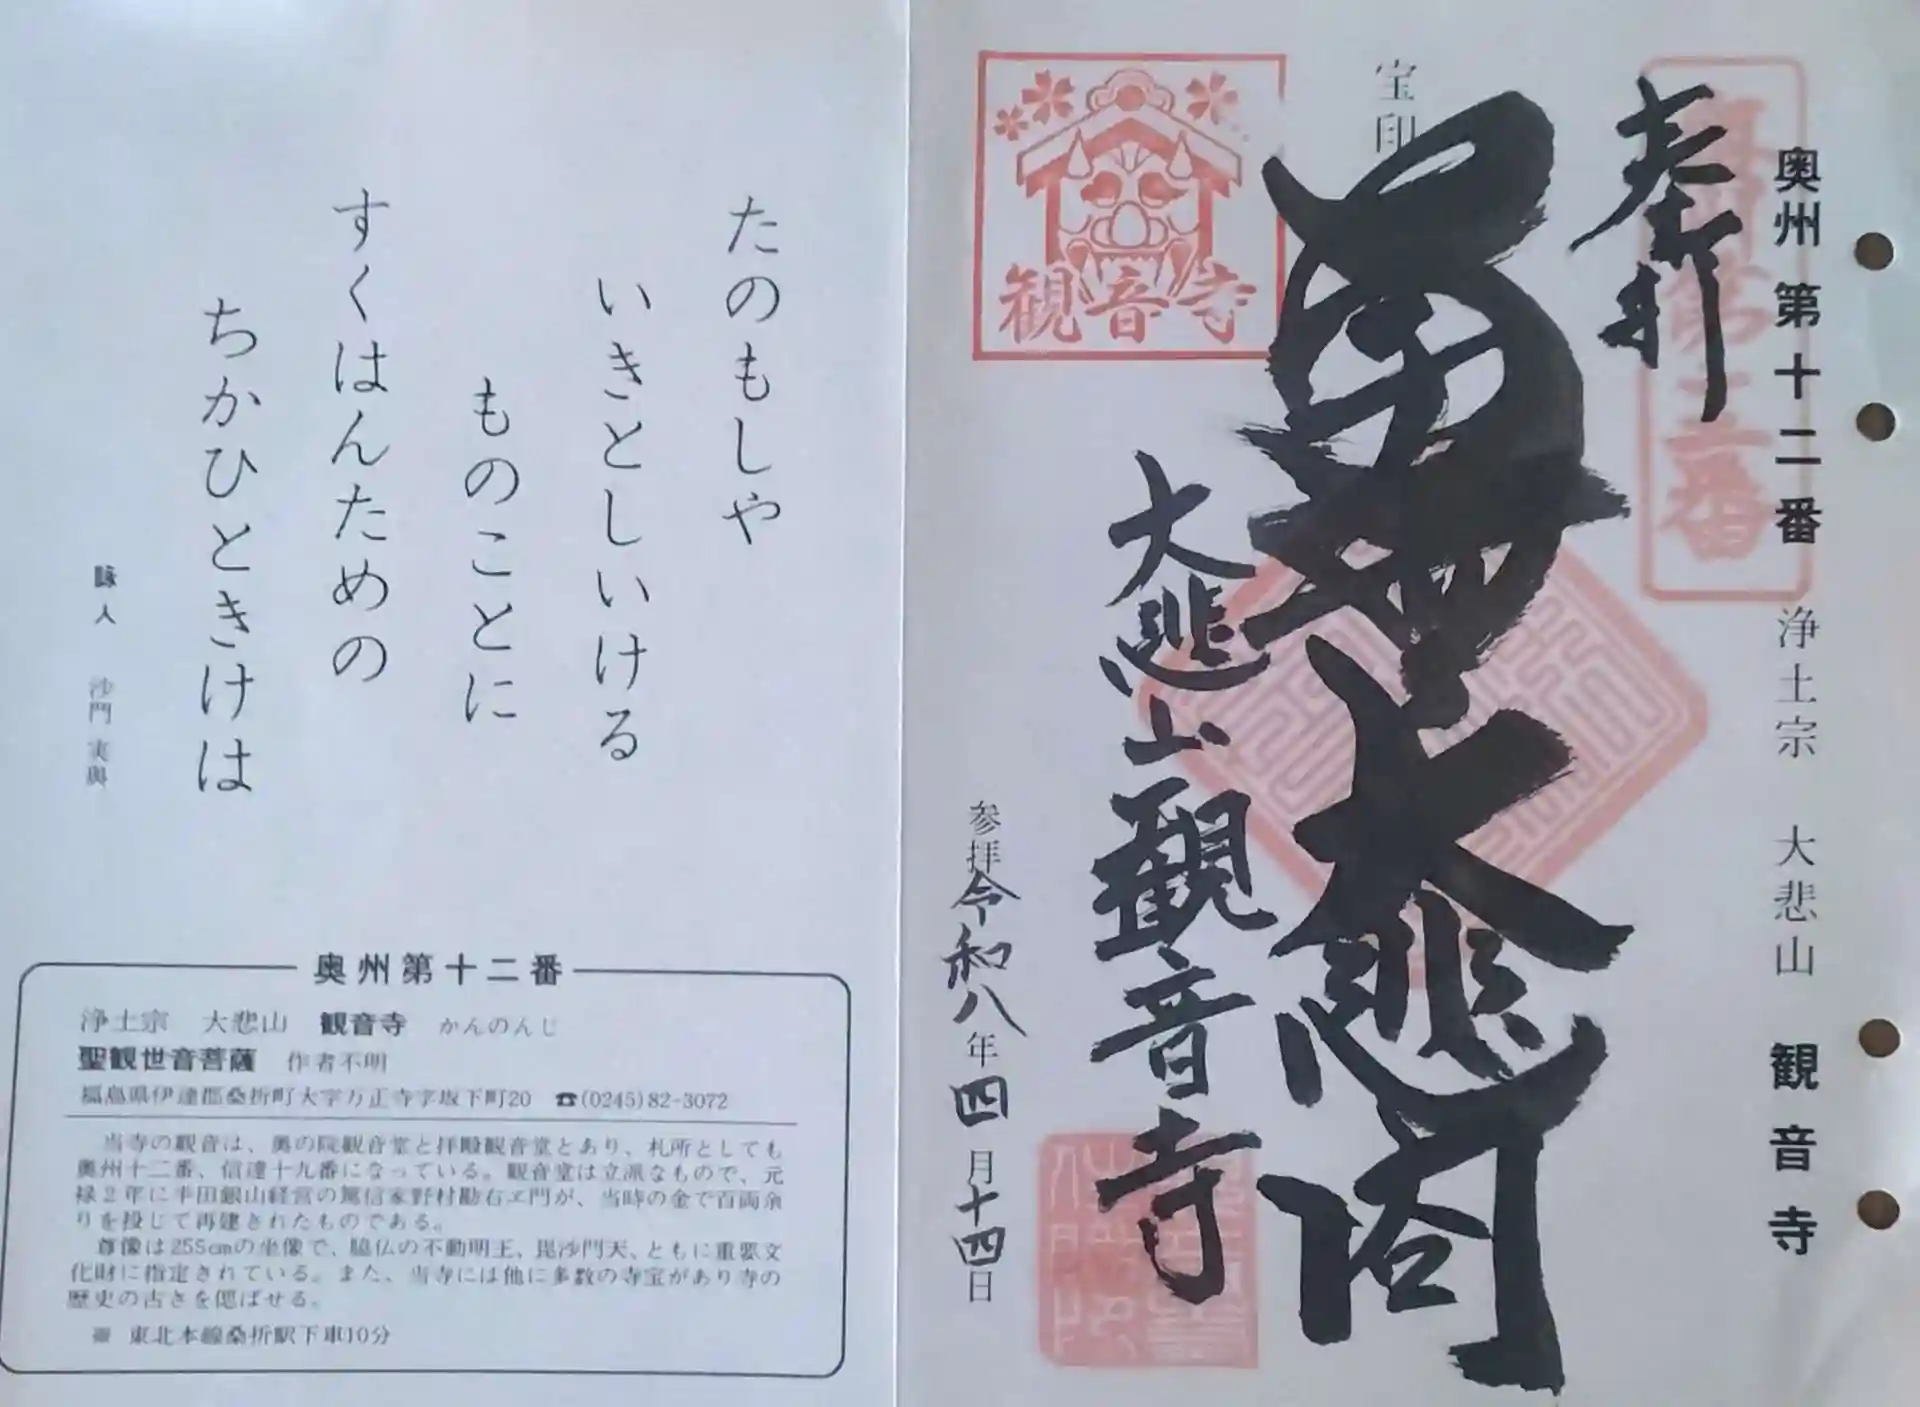 奥州第十二番 浄土宗 大悲山 観音寺
奉拝
大悲閣
宝印
観音寺
大悲山観音寺
参拝令和八年四月十四日
たのもしや
いきとしいける
ものことに
すくはんための
ちかひときけは
詠人 沙門 実興
奥州第十二番
浄土宗 大悲山 観音寺 かんのんじ
聖観世音菩薩 作者不明
福島県伊達郡桑折町大字万正寺字坂下町20 ☎(0245)82-3072
当寺の観音は、奥の院観音堂と拝殿観音堂とあり、札所としても
奥州十二番、信達十九番になっている。観音堂は立派なもので、元
禄2年に半田銀山経営の篤信家野村勘右ヱ門が、当時の金で百両余
りを投じて再建されたものである。
尊像は255cmの坐像で、脇仏の不動明王、毘沙門天、ともに重要文
化財に指定されている。また、当寺には他に多数の寺宝があり寺の
歴史の古さを偲ばせる。
※ 東北本線桑折駅下車10分